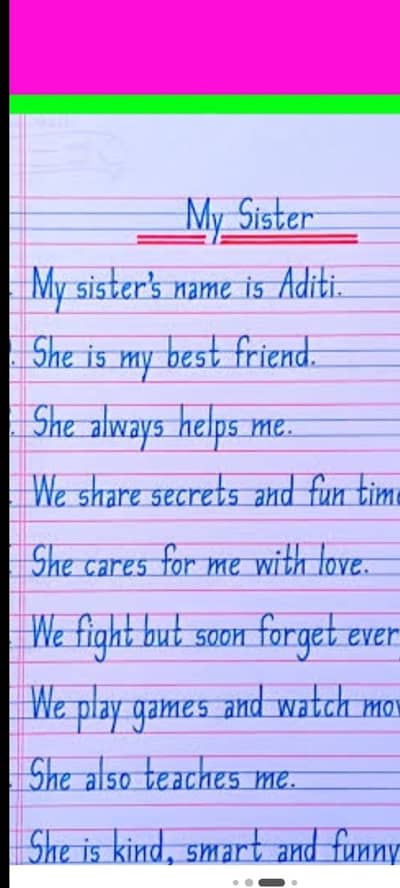 My Sister
My sister's name is Aditi.
She is my best friend.
She always helps me.
We share secrets and fun
She cares for me with love.
We fight but soon forget
We play games and watch
She also teaches me.
She is kind, smart and funny